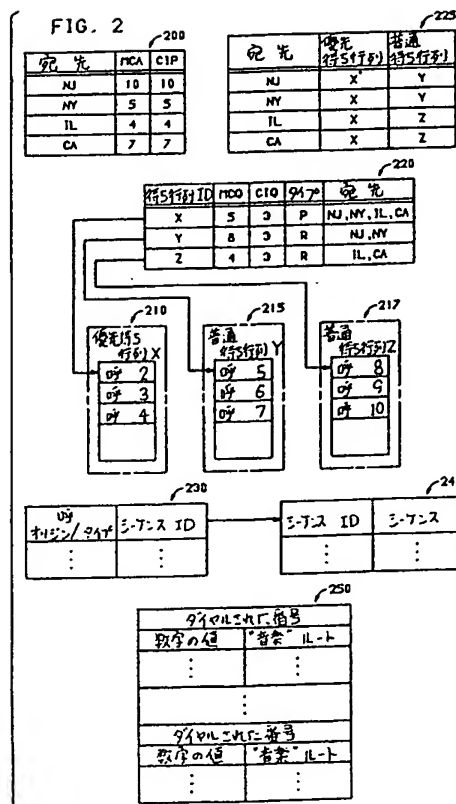 FIG. 2
200
宛先 MCA CIP
NJ 10 10
NY 5 5
IL 4 4
CA 7 7
225
宛先 優先待ち行列 普通待ち行列
NJ X Y
NY X Y
IL X Z
CA X Z
220
待ち行列ID MCQ CIQ タイプ 宛先
X 5 3 P NJ,NY,IL,CA
Y 8 3 R NJ,NY
Z 4 3 R IL,CA
210
優先待ち行列X
呼 2
呼 3
呼 4
215
普通待ち行列Y
呼 5
呼 6
呼 7
217
普通待ち行列Z
呼 8
呼 9
呼 10
230
呼オリジン/タイプ シーケンス ID
24
シーケンス ID シーケンス
250
ダイヤルされた番号
数字の値 "音楽" ルート
ダイヤルされた番号
数字の値 "音楽" ルート